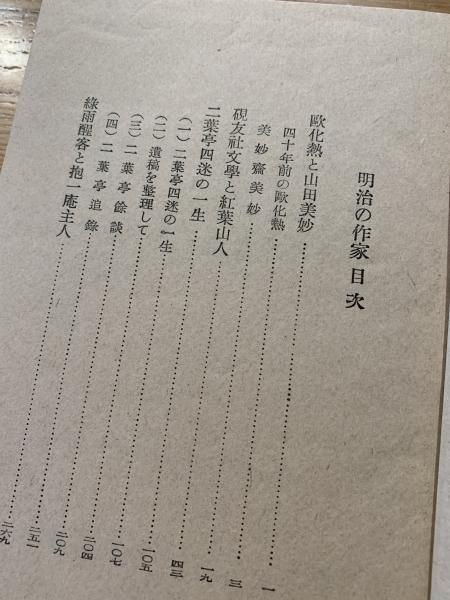 明治の作家 目次
歐化熱と山田美妙……一
四十年前の歐化熱……三
美妙齋美妙……一九
硯友社文學と紅葉山人……四三
二葉亭四迷の一生……一〇五
(一)二葉亭四迷の一生……一〇七
(二)遺稿を整理して……二〇四
(三)二葉亭餘談……二〇九
(四)二葉亭追錄……二五一
綠雨醒客と抱一庵主人……二六九